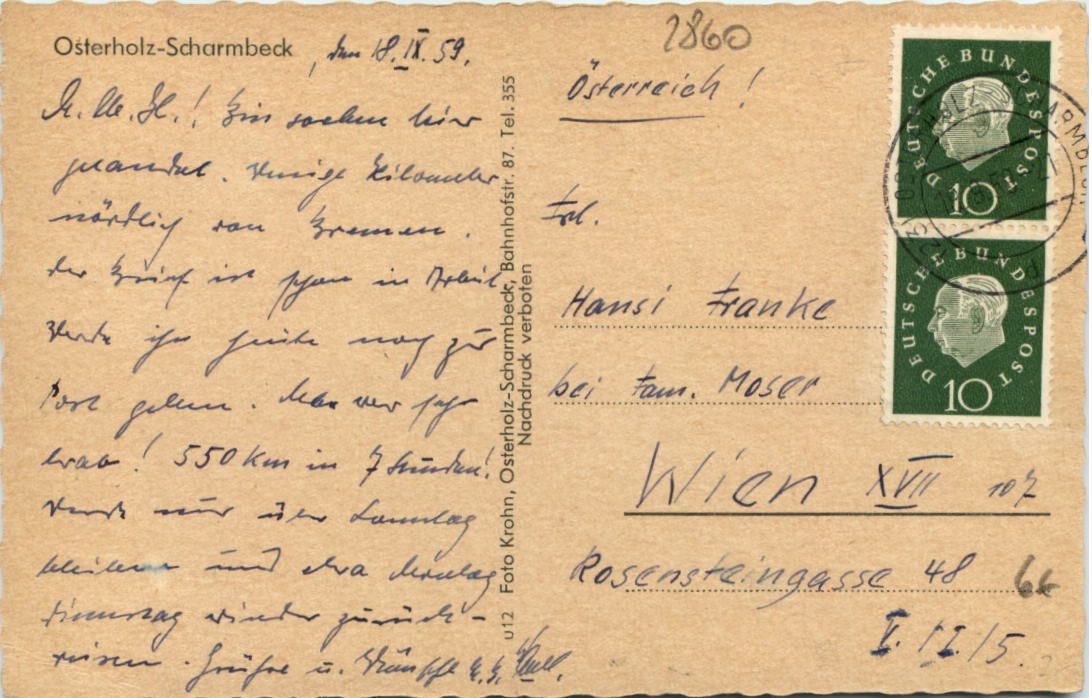 Osterholz-Scharmbeck, den 18. IX. 59.
! Bin soeben hier
gelandet. Wenige Kilometer
nördlich von Bremen.
Der Brief ist schon in Arbeit
Werde ihn heute noch zur
Post geben. war sehr
brav! 550 Km in 7 Stunden!
Werde nur über Sonntag
bleiben und etwa Montag
Dienstag wieder zurück-
reisen. Grüße u.
u12 Foto Krohn, Osterholz-Scharmbeck, Bahnhofstr. 87. Tel. 355
Nachdruck verboten
2860
Österreich!
Frl.
Hansi Franke
bei Fam. Moser
Wien XVII 107
Rosensteingasse 48
66
V./I./5.
DEUTSCHE BUNDESPOST
10
DEUTSCHE BUNDESPOST
10